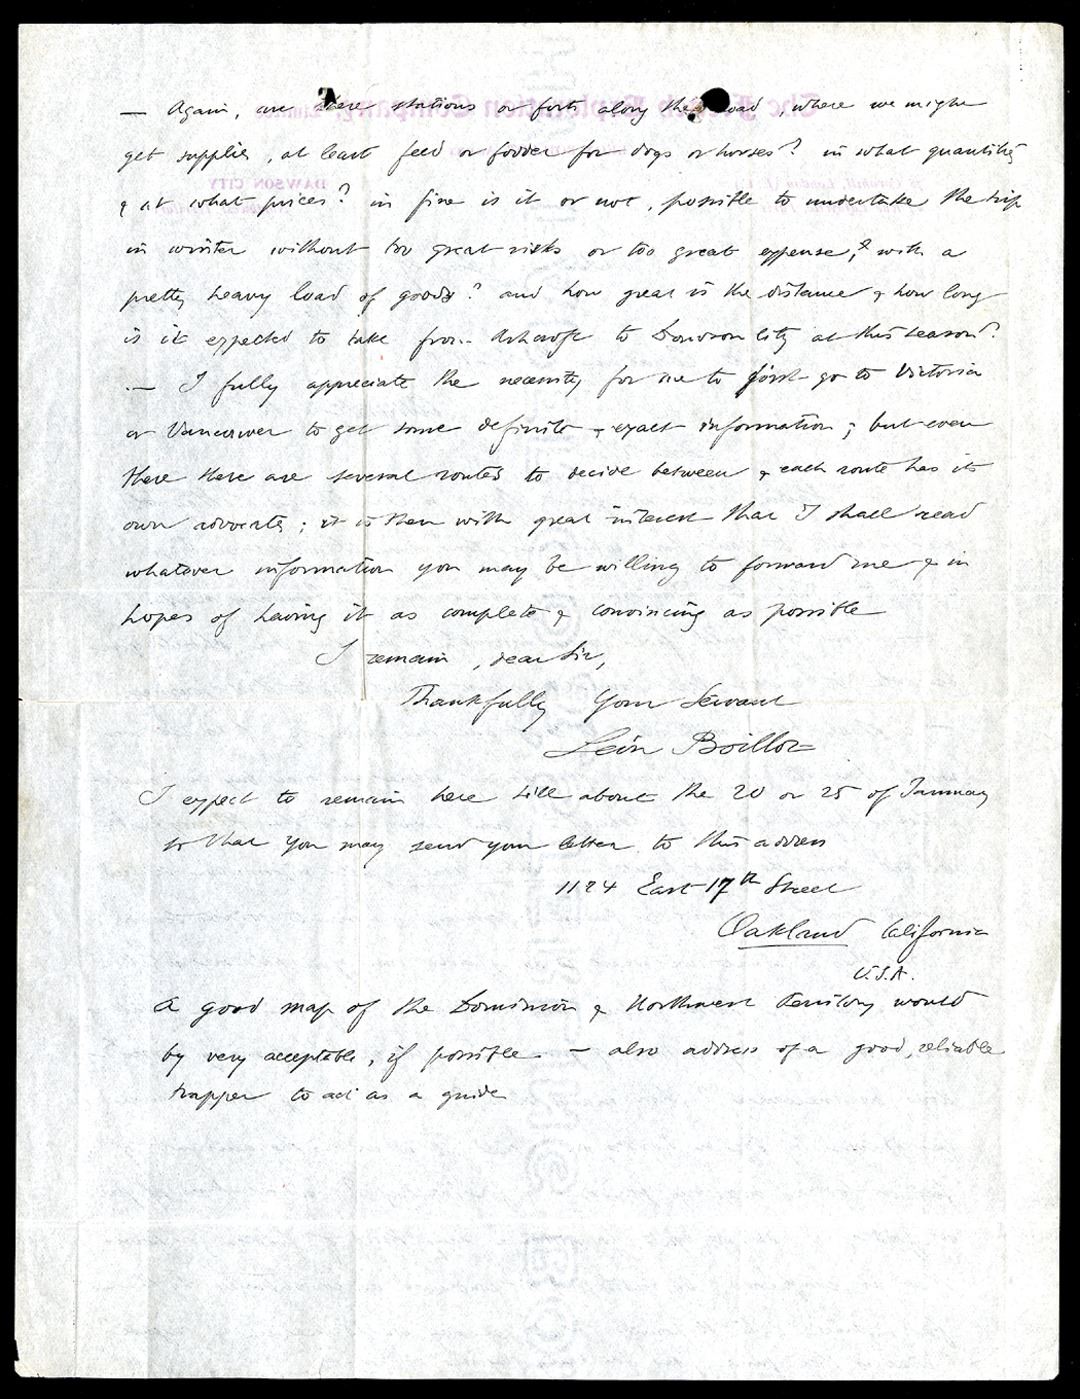 — Again, are there stations or forts along the road, where we might
get supplies, at least feed or fodder for dogs or horses? in what quantities
& at what prices? in fine is it or not, possible to undertake the trip
in winter without too great risks or too great expense,? with a
pretty heavy load of goods? and how great is the distance & how long
is it expected to take from Ashcroft to Dawson City at this season?
— I fully appreciate the necessity for me to first go to Victoria
or Vancouver to get some definite & exact information; but even
there there are several routes to decide between & each route has its
own advocates; it is then with great interest that I shall read
whatever information you may be willing to forward me & in
hopes of having it as complete & convincing as possible
I remain, dear Sir,
Thankfully Your Servant
Léon Boillot
I expect to remain here till about the 20 or 25 of January
so that you may send your letter to this address
1124 East 17th Street
Oakland California
U.S.A.
A good map of the Dominion & Northwest Territory would
by very acceptable, if possible. — also address of a good, reliable
trapper to act as a guide
The Exploration Company, Limited
DAWSON CITY